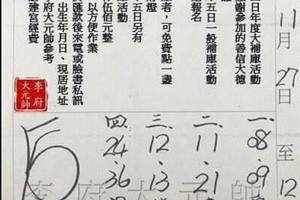 日年度大補庫活動
謝參加的善信大德
者，可免費點一盞
五日一般補庫活動
報名
五日另有
活動
伍佰元整
以方便作業
匯款後來電或臉書私訊
出生年月日、現居地址
府大元帥參考
建宮經費
李府
大元帥
11月27日至12
一、08.09
二、11.21
三、12.13
四、24.36
李府大元帥